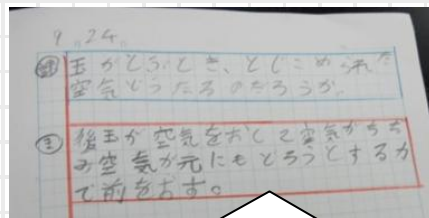 9,24,
問 玉がとぶとき、とじこめられた
空気どうなるのだろうか。
ま 後玉が空気をおして空気がちぢ
み空気が元にもどろうとする力
で前をおす。